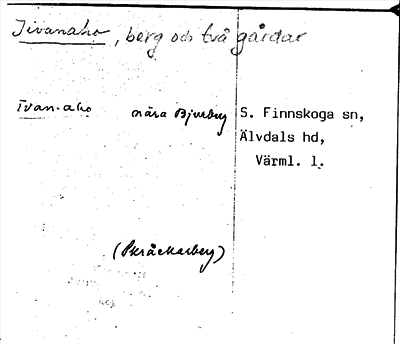 Iivanaho, berg och två gårdar
Ivan-aho nära Bjurberg
S. Finnskoga sn,
Älvdals hd,
Värml. l.
(Skräckarberg)